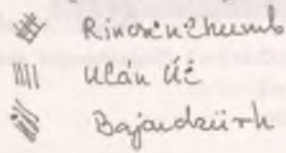 Rinčenlhumb
Ulán Úč
Bajandzürh